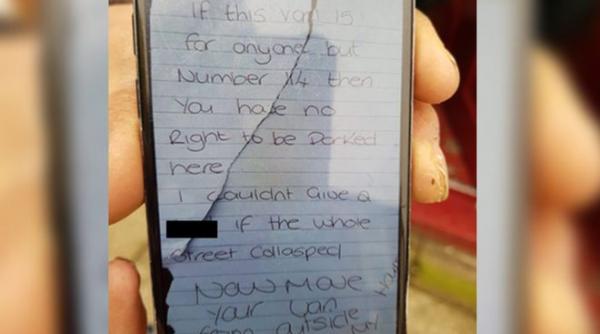 If this van is
for anyone but
Number 14 then
You have no
Right to be Parked
here
I couldnt Give a
if the whole
Street Collasped
Now Move
Your Van
from outside
My House